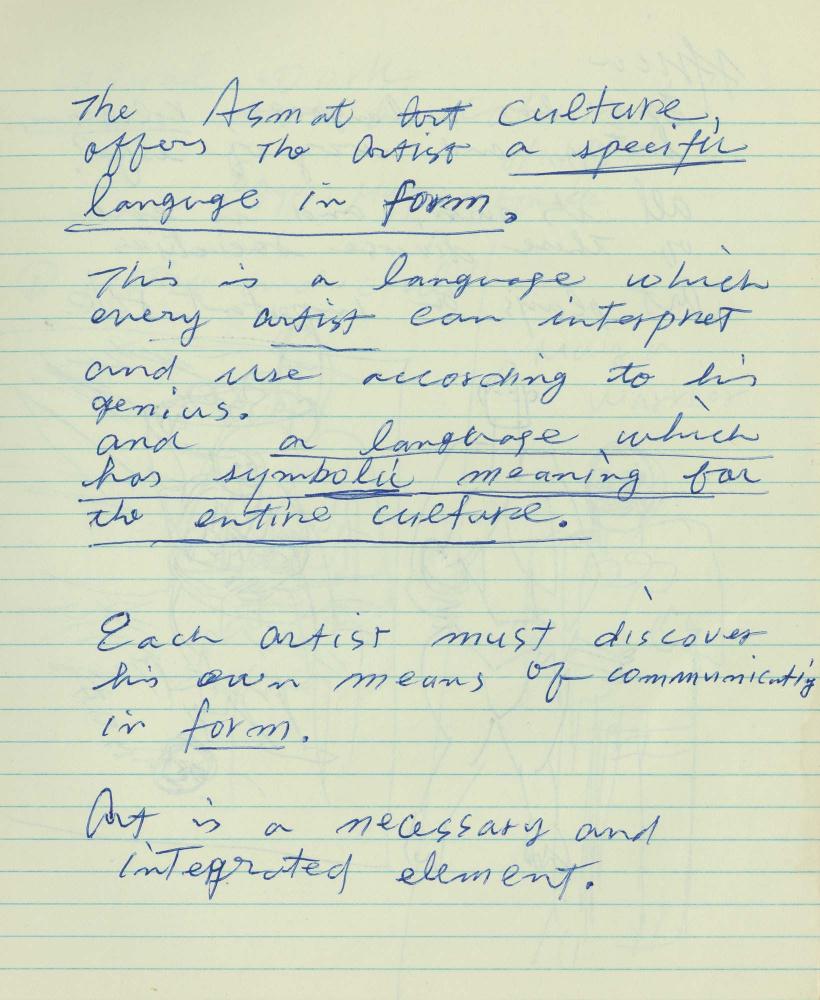 The Asmat Art culture,
offers the artist a specific
languge in form.
This is a language which
every artist can interpret
and use according to his
genius.
and a language which
has symbolic meaning for
the entire culture.
Each artist must discover
his own means of communicatig
in form.
Art is a necessary and
integrated element.